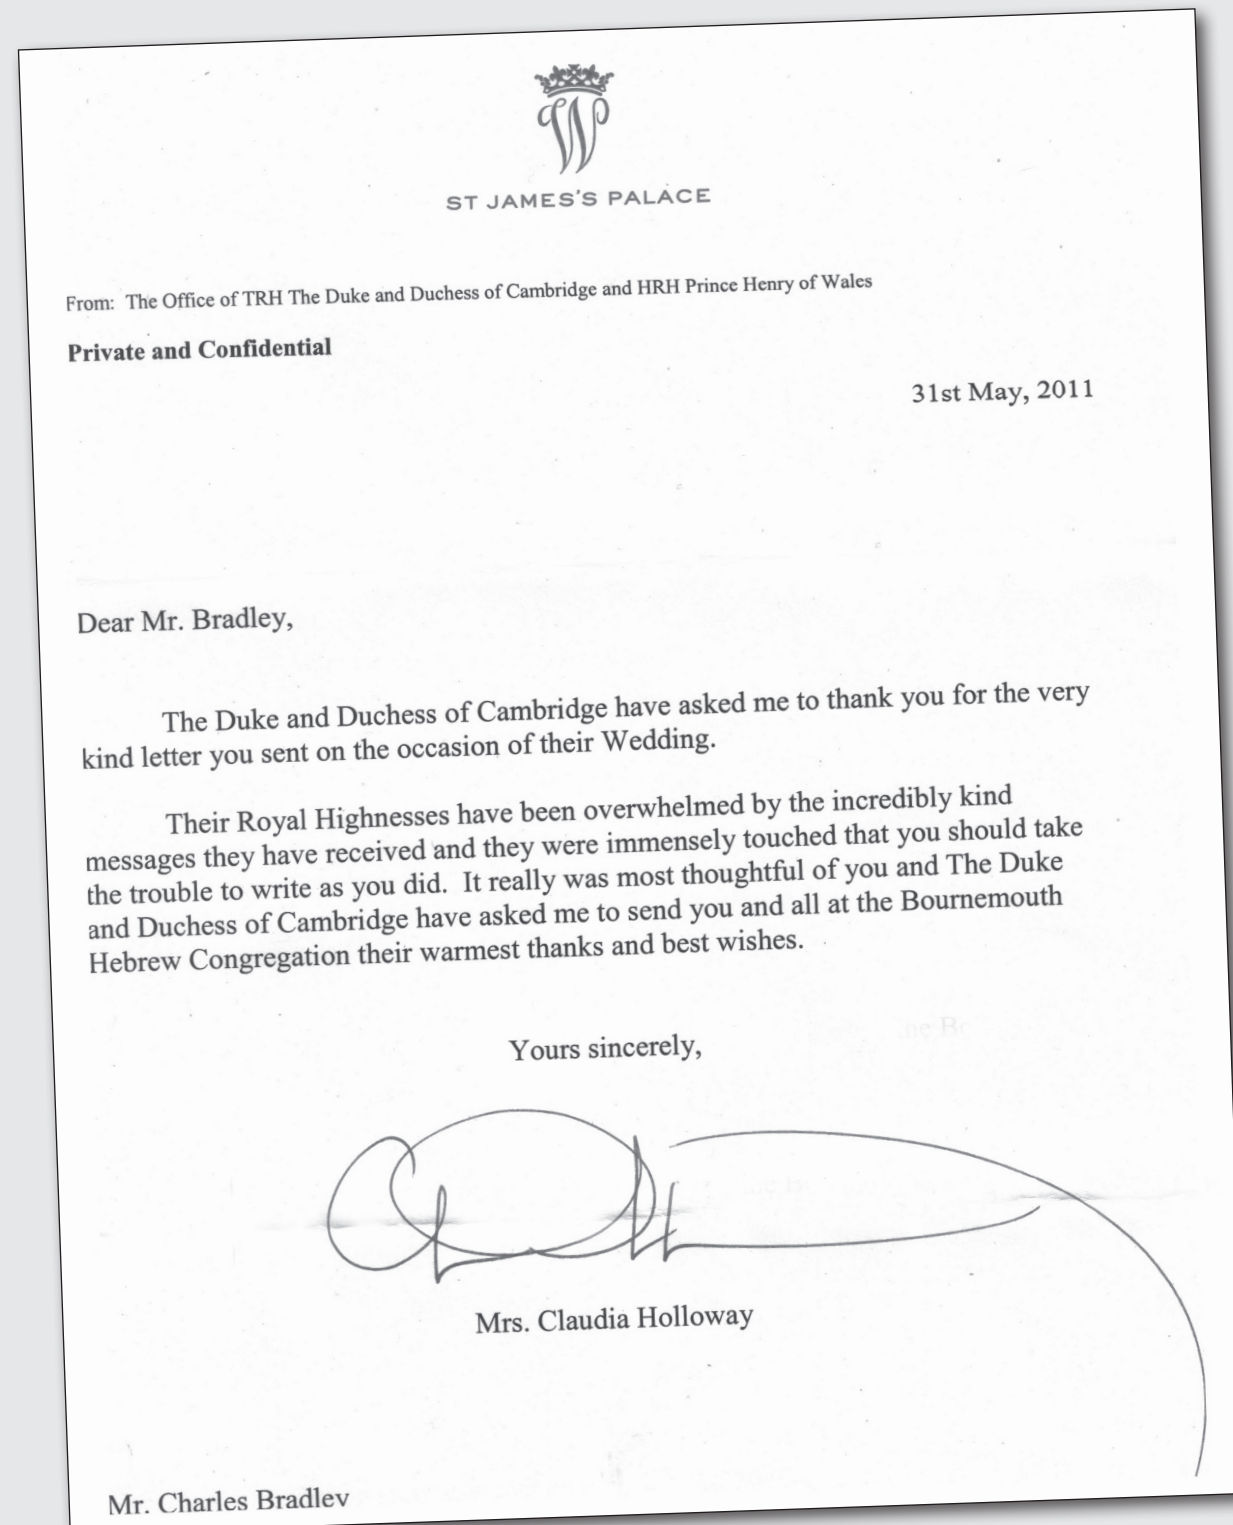 W
ST JAMES'S PALACE
From: The Office of TRH The Duke and Duchess of Cambridge and HRH Prince Henry of Wales
Private and Confidential
31st May, 2011
Dear Mr. Bradley,
The Duke and Duchess of Cambridge have asked me to thank you for the very
kind letter you sent on the occasion of their Wedding.
Their Royal Highnesses have been overwhelmed by the incredibly kind
messages they have received and they were immensely touched that you should take
the trouble to write as you did. It really was most thoughtful of you and The Duke
and Duchess of Cambridge have asked me to send you and all at the Bournemouth
Hebrew Congregation their warmest thanks and best wishes.
Yours sincerely,
Mrs. Claudia Holloway
Mr. Charles Bradley